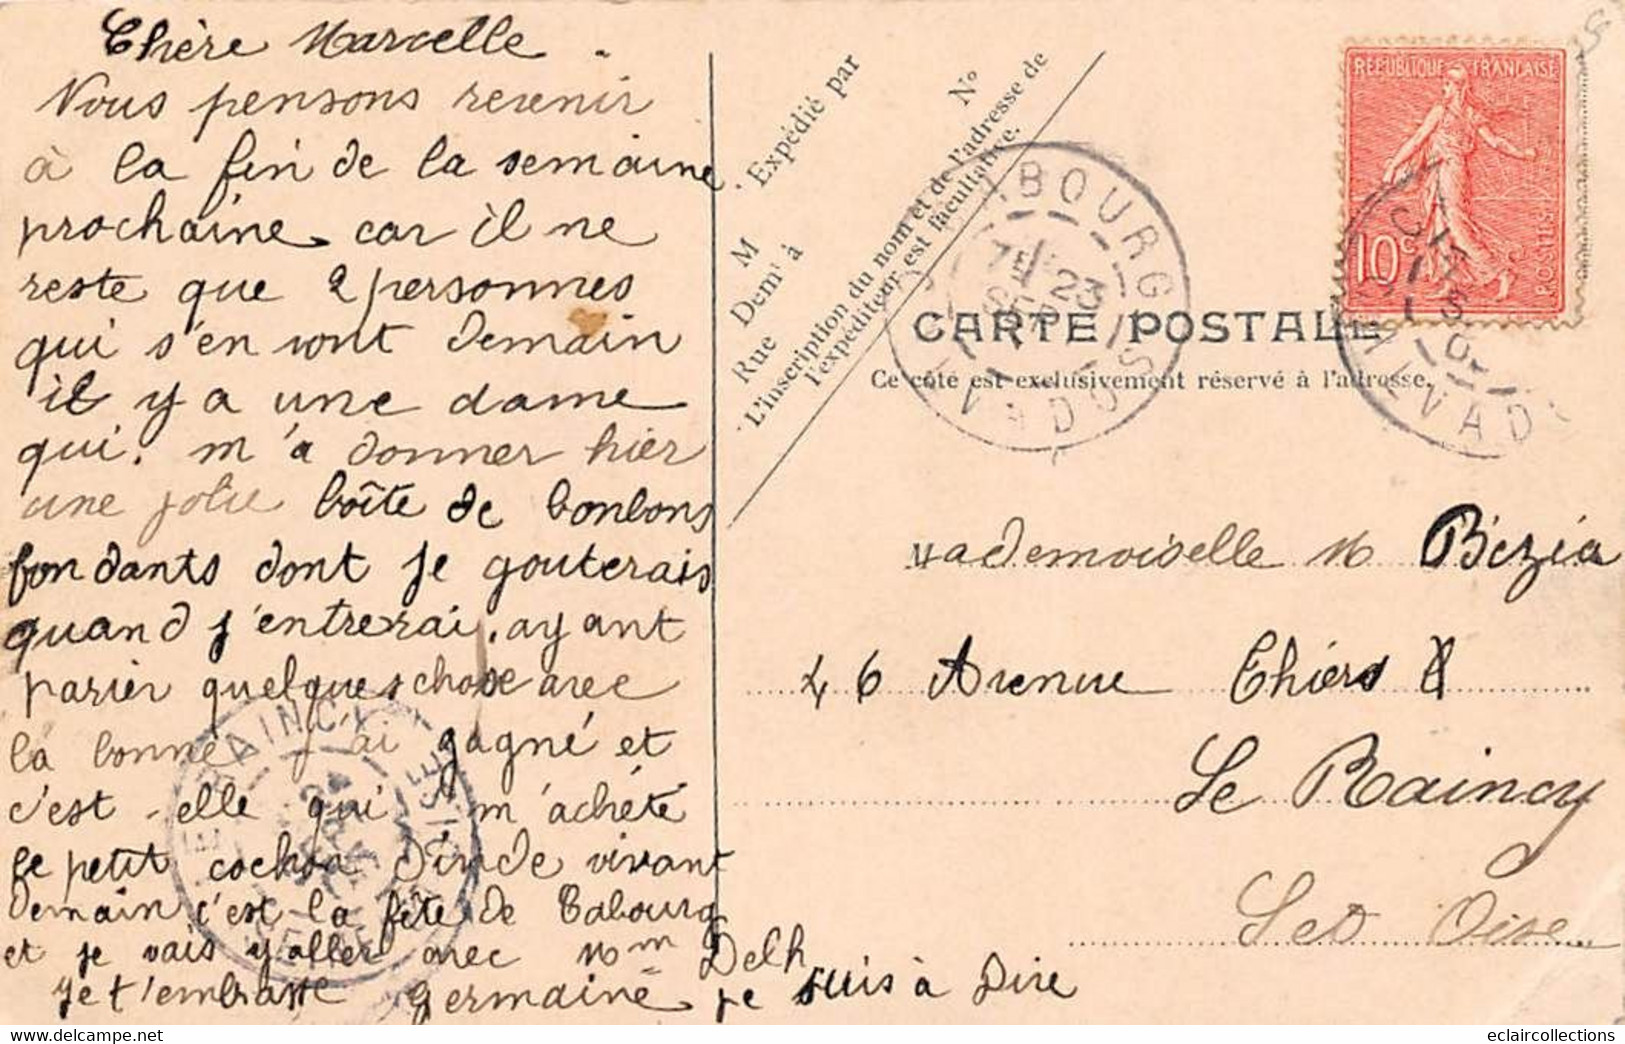 Chère Marcelle
Nous pensons revenir
à la fin de la semaine
prochaine car il ne
reste que 2 personnes
qui s'en vont demain
il y a une dame
qui m'a donner hier
une jolie boîte de bonbons
fondants dont je gouterais
quand j'entrerai, ayant
parier quelque chose avec
la bonne j'ai gagné et
c'est elle qui m'achète
le petit cochon d'inde vivant
demain c'est la fête de Cabourg
et je vais y aller avec Mme Delh
je t'embrasse Germaine je suis à Dire
Expédié par
M
Dem^t à
Rue
N°
L'inscription du nom et de l'adresse de
l'expéditeur est facultative.
CARTE POSTALE
Ce côté est exclusivement réservé à l'adresse.
RÉPUBLIQUE FRANÇAISE
10c
POSTES
BOURG
23
VADOS
RAINCY
Mademoiselle M Bézia
46 Avenue Thiers
Le Raincy
Set Oise
https://www.delcampe.net
eclaircollections